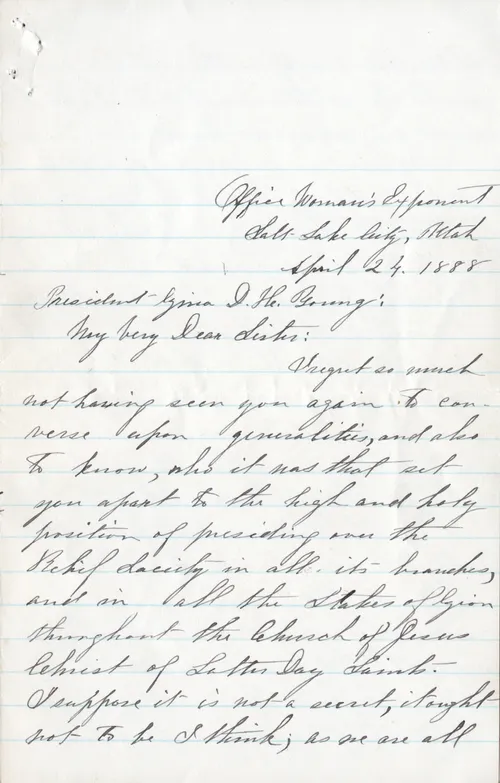 Office Woman's Exponent
Salt Lake City, Utah
April 24. 1888
President Zina D. H. Young:
My Very Dear Sister:
I regret so much
not having seen you again to con-
verse upon generalities, and also
to know, who it was that set
you apart to the high and holy
position of presiding over the
Relief Society in all its branches,
and in all the Stakes of Zion
throughout the Church of Jesus
Christ of Latter Day Saints.
I suppose it is not a secret, it ought
not to be I think; as we are all